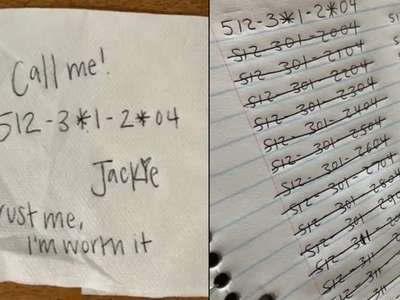 Call me!
512-3*1-2*04
Jackie
rust me,
I'm worth it
512-3*1-2*04
512-301-2004
512-301-2104
512-301-2204
512-301-2304
512-301-2404
512-301-2504
512-301-2604
512-301-2704
512-301-2804
512-301-290
512-311-20
512-311-2
512-311